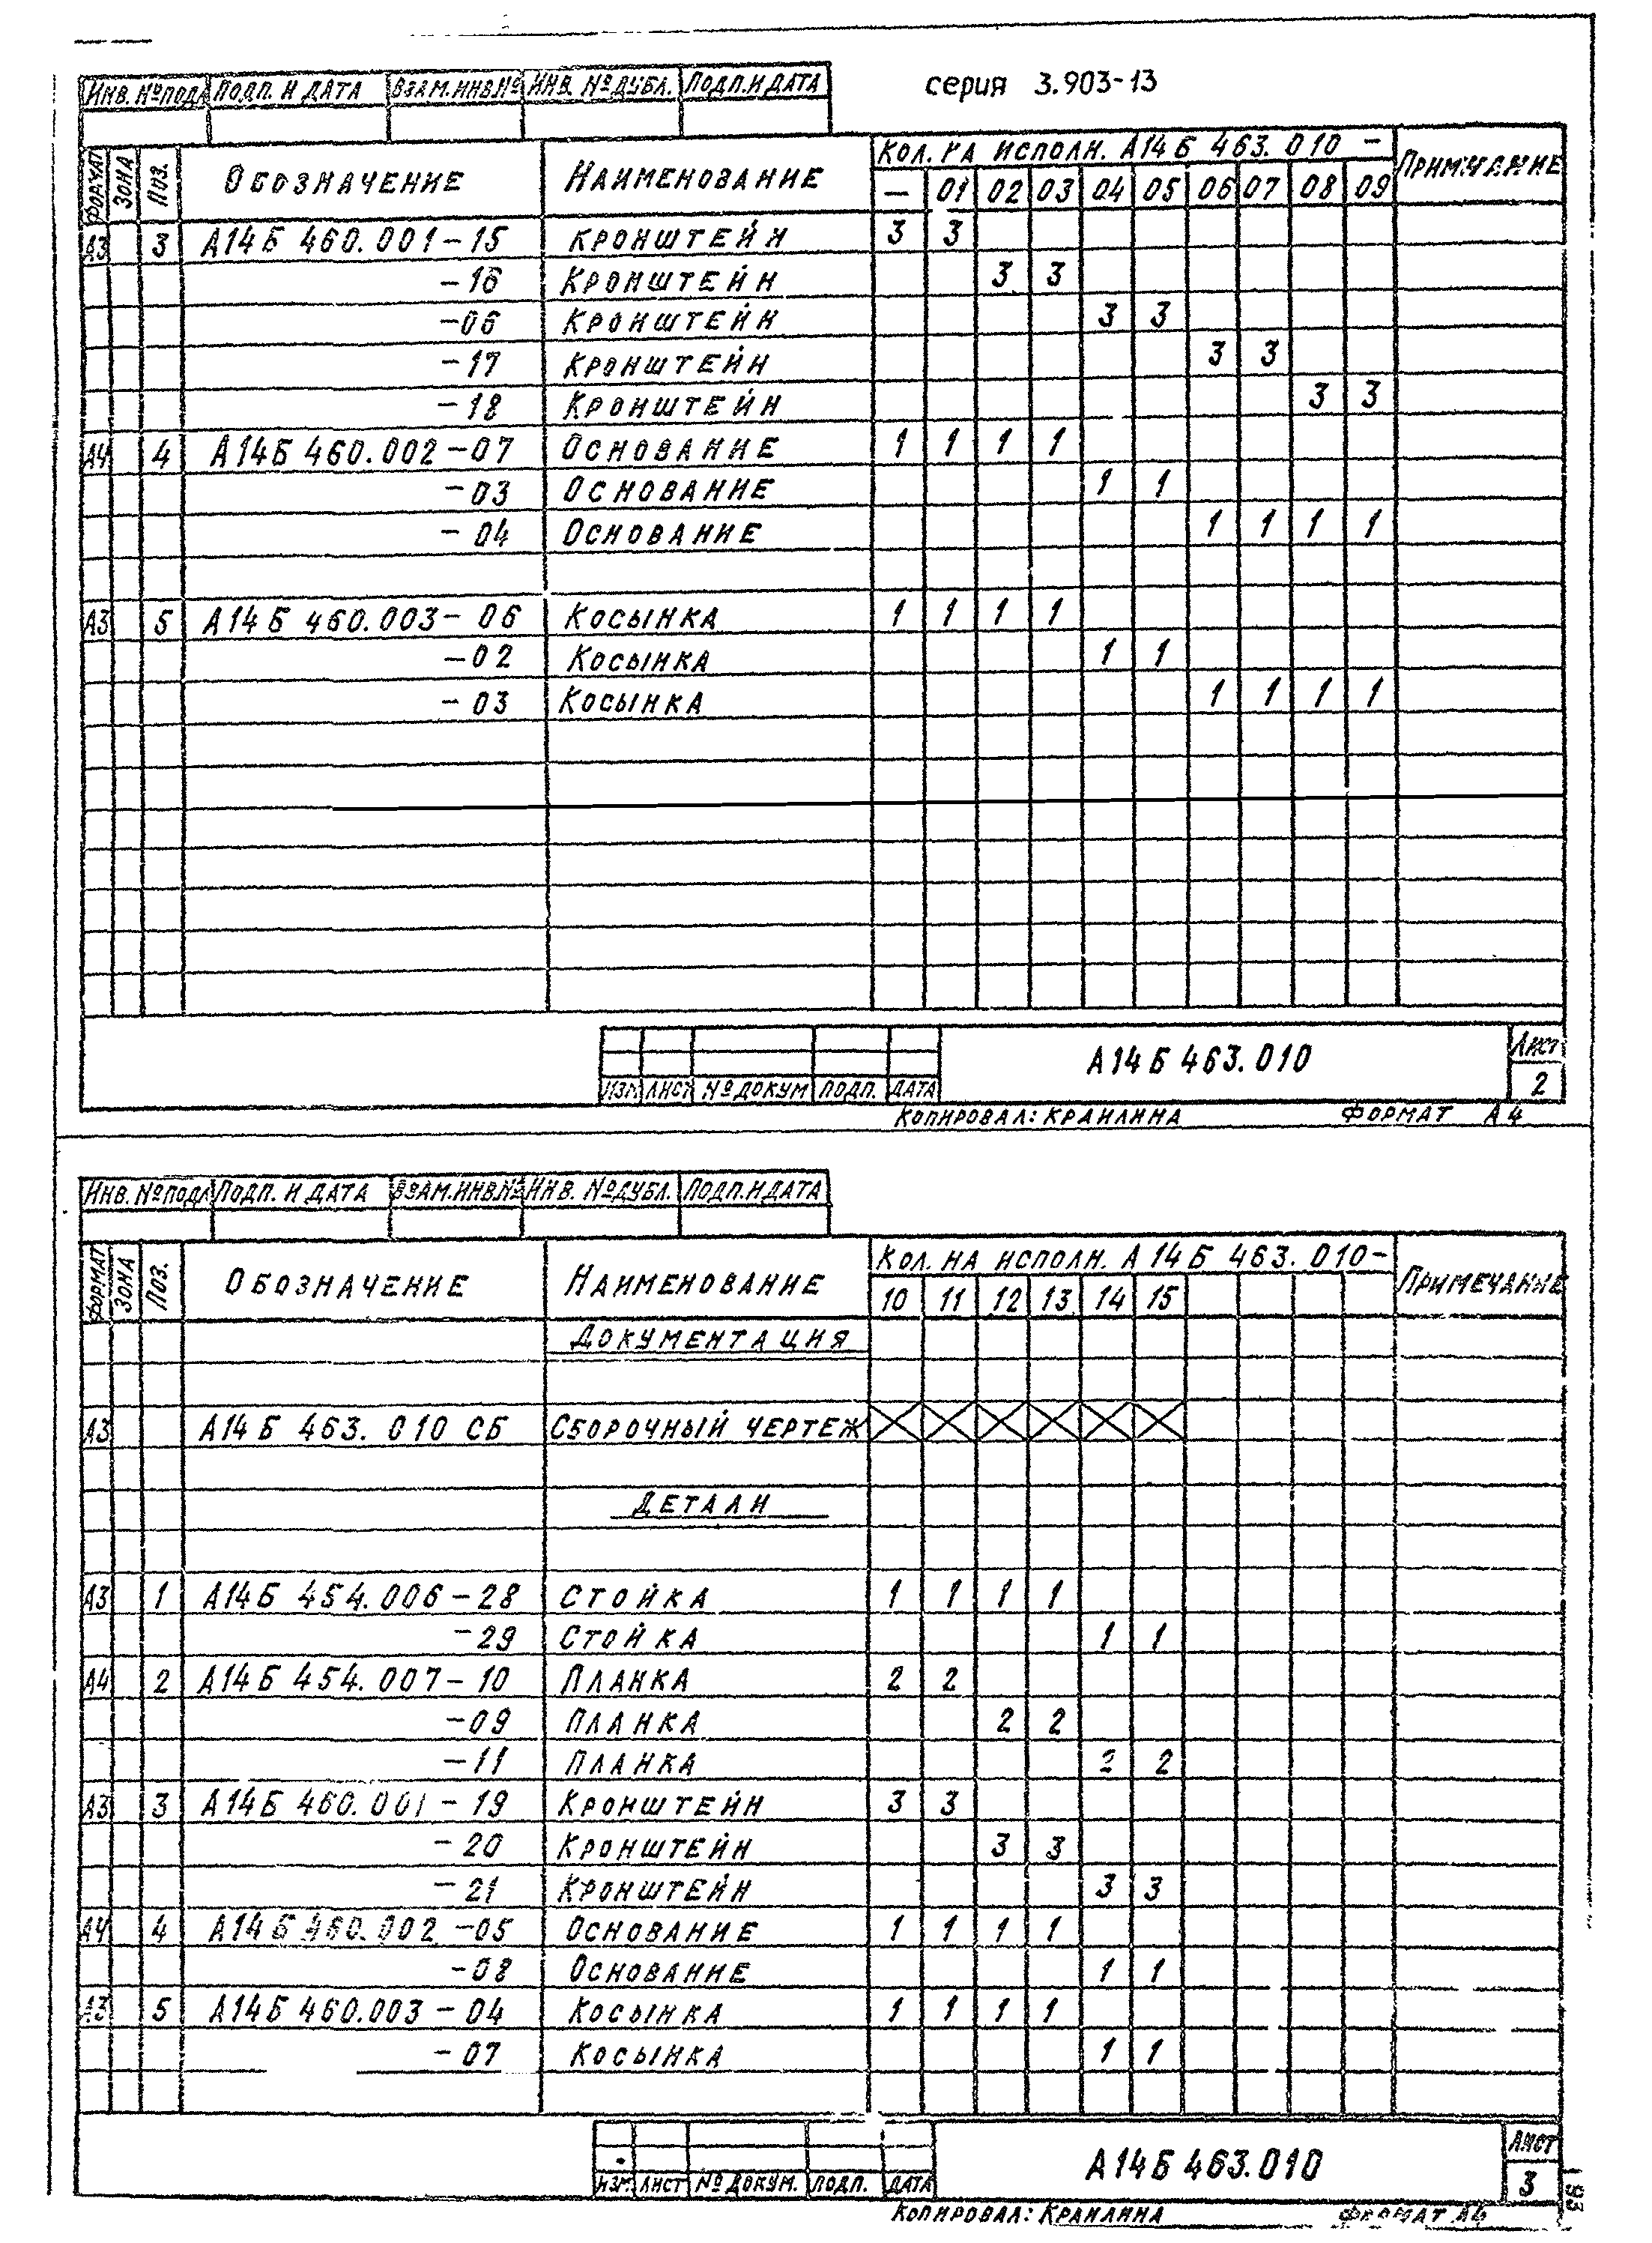 серия 3.903-13
Инв. № подл Подп. и дата Взам.инв.№ Инв. № дубл. Подп.и дата
Формат Зона Поз. Обозначение Наименование Кол. на исполн. А14Б 463.010 – Примечание
– 01 02 03 04 05 06 07 08 09
А3 3 А14Б 460.001-15 Кронштейн 3 3
-16 Кронштейн 3 3
-06 Кронштейн 3 3
-17 Кронштейн 3 3
-18 Кронштейн 3 3
А4 4 А14Б 460.002-07 Основание 1 1 1 1
-03 Основание 1 1
-04 Основание 1 1 1 1
А3 5 А14Б 460.003-06 Косынка 1 1 1 1
-02 Косынка 1 1
-03 Косынка 1 1 1 1
А14Б 463.010 Лист
2
Изм Лист № докум Подп. Дата
Копировал: Краилина Формат А4
Инв. № подл Подп. и дата Взам.инв.№ Инв. № дубл. Подп.и дата
Формат Зона Поз. Обозначение Наименование Кол. на исполн. А14Б 463.010- Примечание
10 11 12 13 14 15
Документация
А3 А14Б 463.010 СБ Сборочный чертеж
Детали
А3 1 А14Б 454.006-28 Стойка 1 1 1 1
-29 Стойка 1 1
А4 2 А14Б 454.007-10 Планка 2 2
-09 Планка 2 2
-11 Планка 2 2
А3 3 А14Б 460.001-19 Кронштейн 3 3
-20 Кронштейн 3 3
-21 Кронштейн 3 3
А4 4 А14Б 460.002-05 Основание 1 1 1 1
-08 Основание 1 1
А3 5 А14Б 460.003-04 Косынка 1 1 1 1
-07 Косынка 1 1
А14Б 463.010 Лист
3
Изм. Лист № докум. Подп. Дата
Копировал: Краилина Формат А4
193